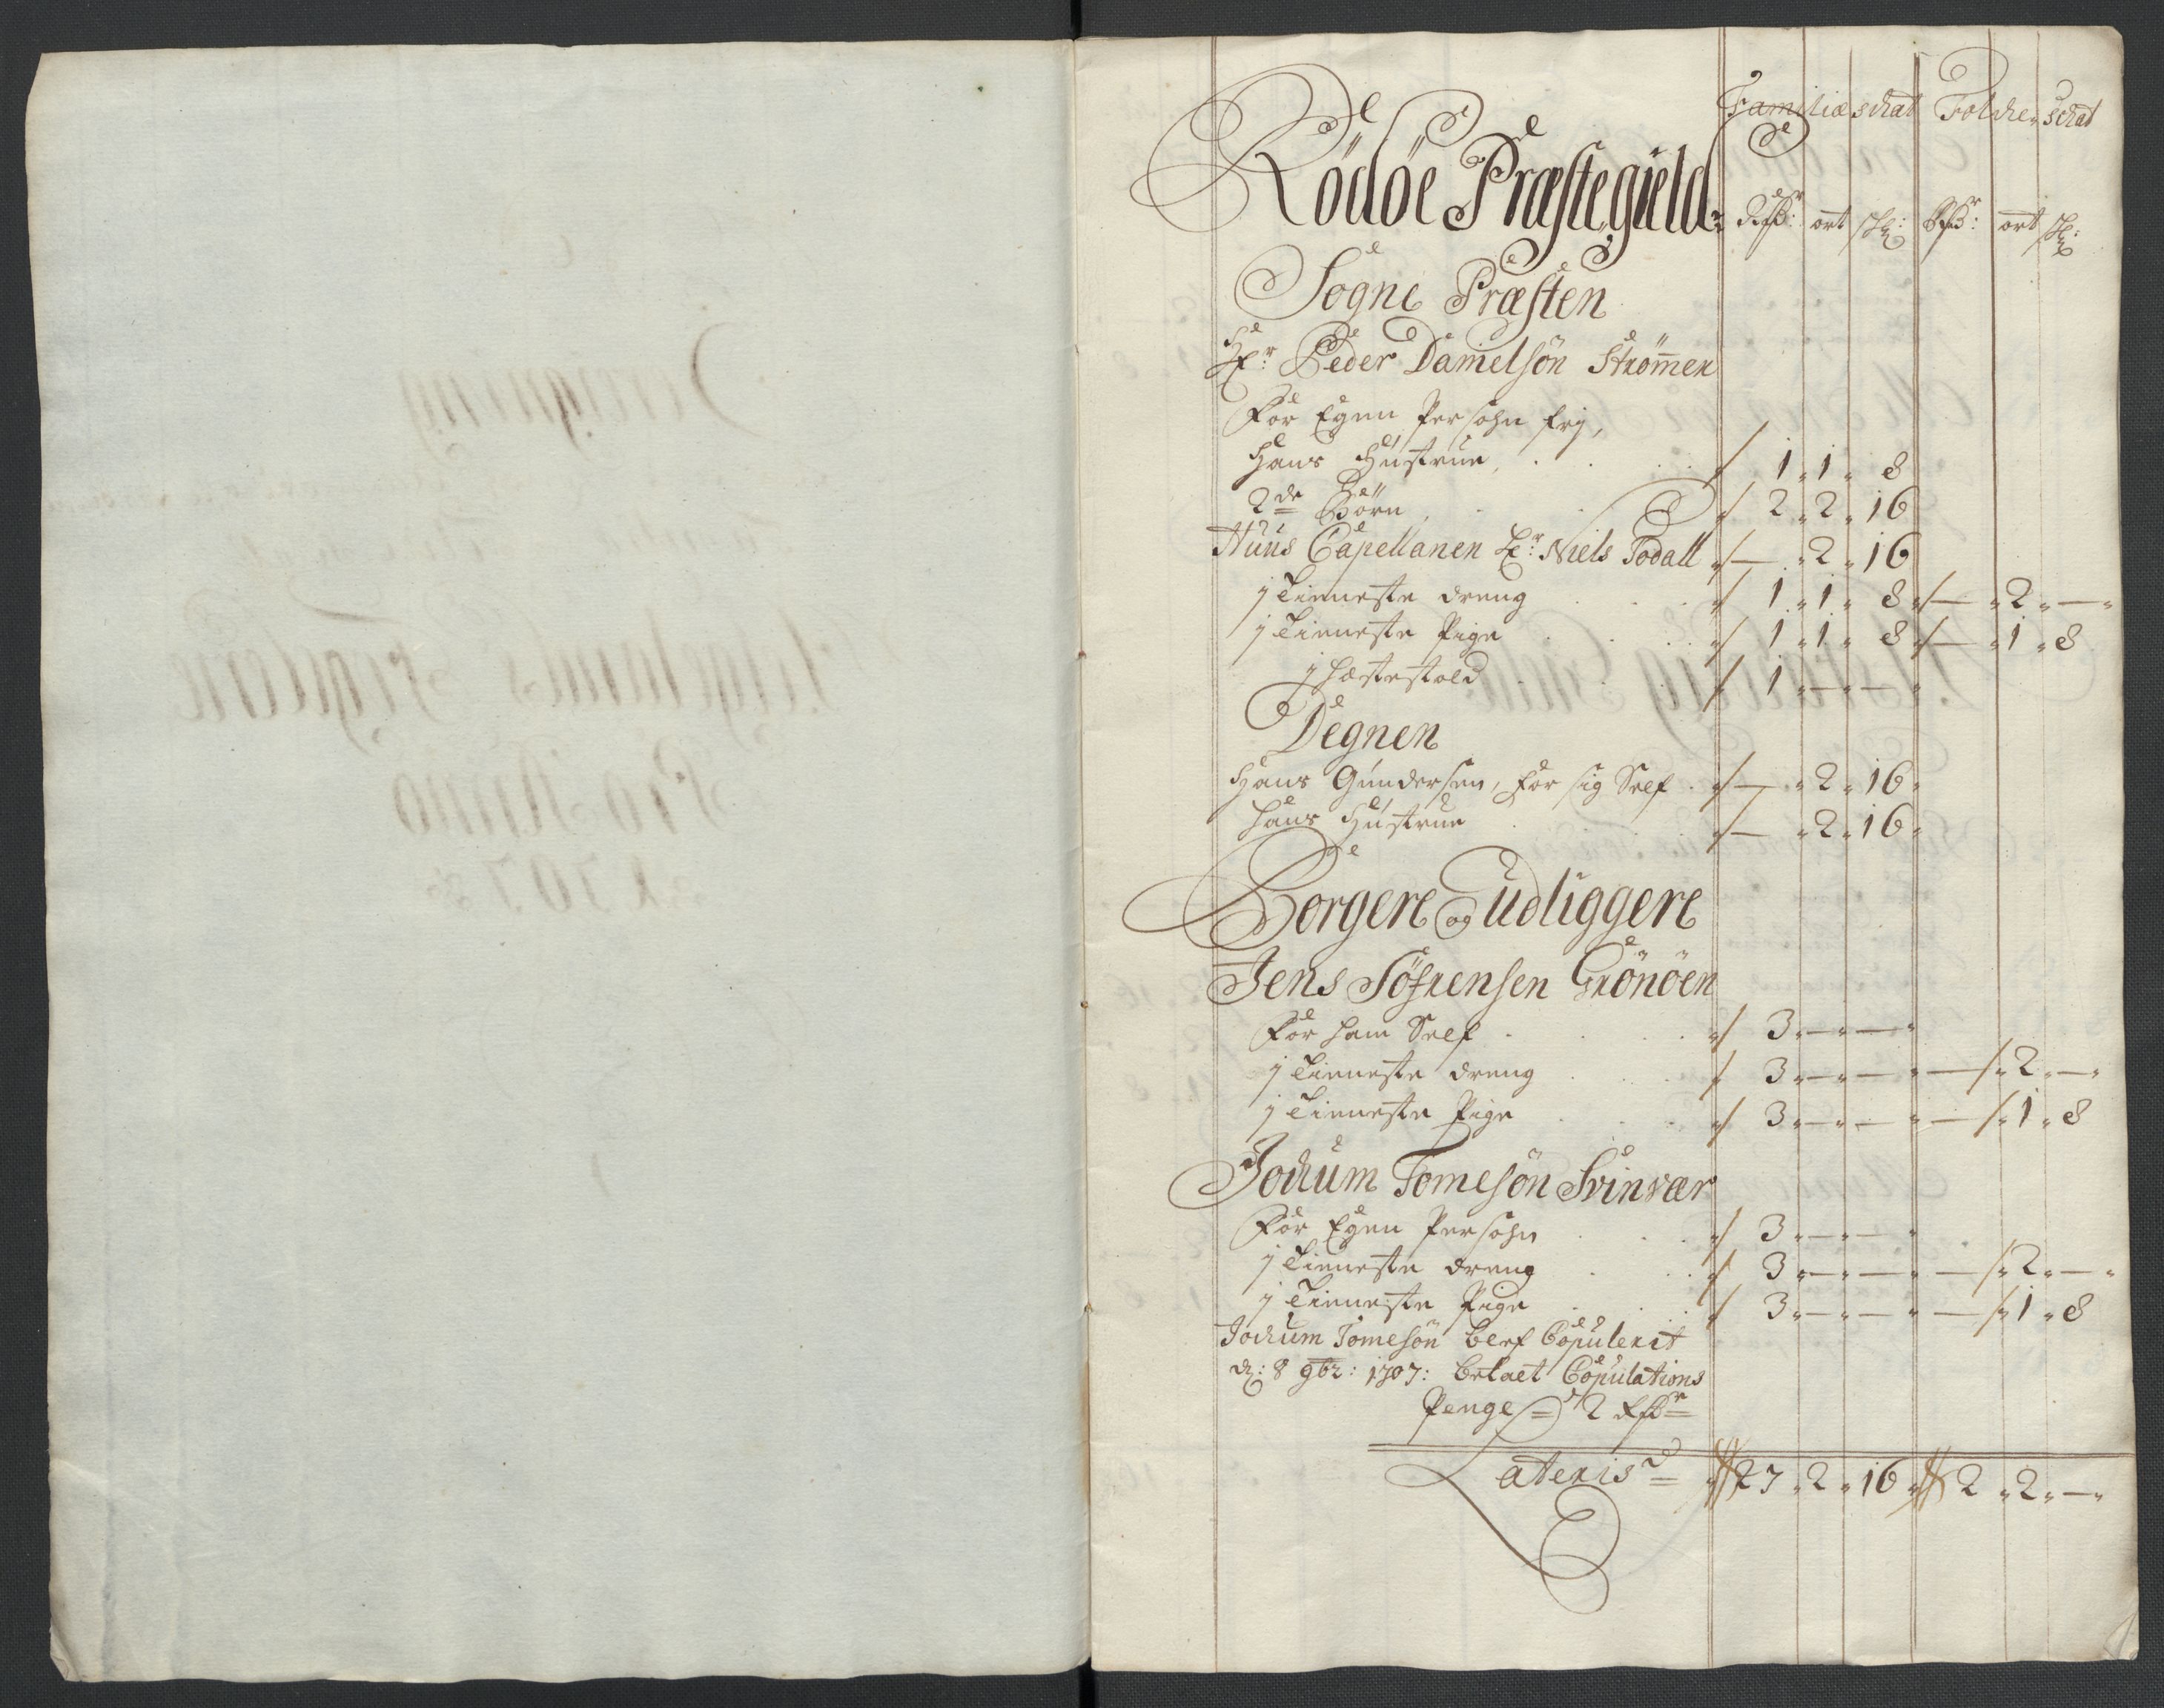 Familiæ schat Folche schat
Rödöe Præstegield
Rdr: ort sk: Rdr: ort sk:
Sogne Præsten
Hr: Peder Danielsön Strömmer
For Egen Persohn frj,
Hans Hustrue 1 1 8
2de Börn 2 2 16
Huus Capellanen Hr: Niels Todall — 2 16
1 Tienneste dreng 1 1 8 — 2 —
1 Tienneste Pige 1 1 8 — 1 8
1 Hæstestold 1 — —
Degnen
Hans Gundersen, for sig Self — 2 16
Hans Hustrue — 2 16
Borgere og udliggere
Jens Söfrensen Grönöen
For ham Self 3 — —
1 Tienneste dreng 3 — — — 2 —
1 Tienneste Pige 3 — — — 1 8
Jochum Tomesön Svinvær
For Egen Persohn 3 — —
1 Tienneste dreng 3 — — — 2 —
1 Tienneste Pige 3 — — — 1 8
Jochum Tomesön blef Copulerit
d: 8 9br: 1707: betaet Copulations
Penge = 2 Rdr
Lateris = 27 2 16 2 2 —